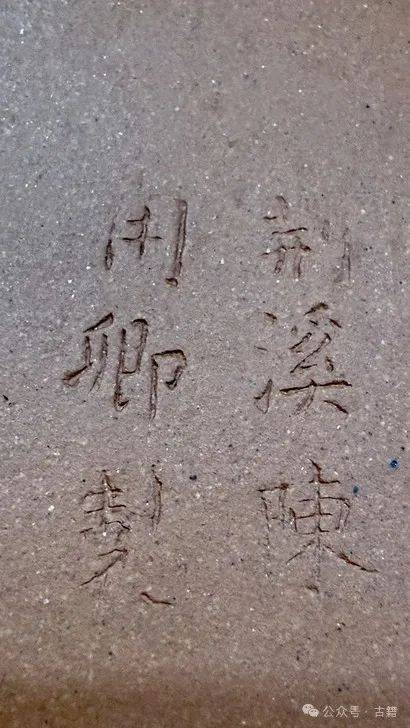 荊溪陳
用卿製
公众号·古籍